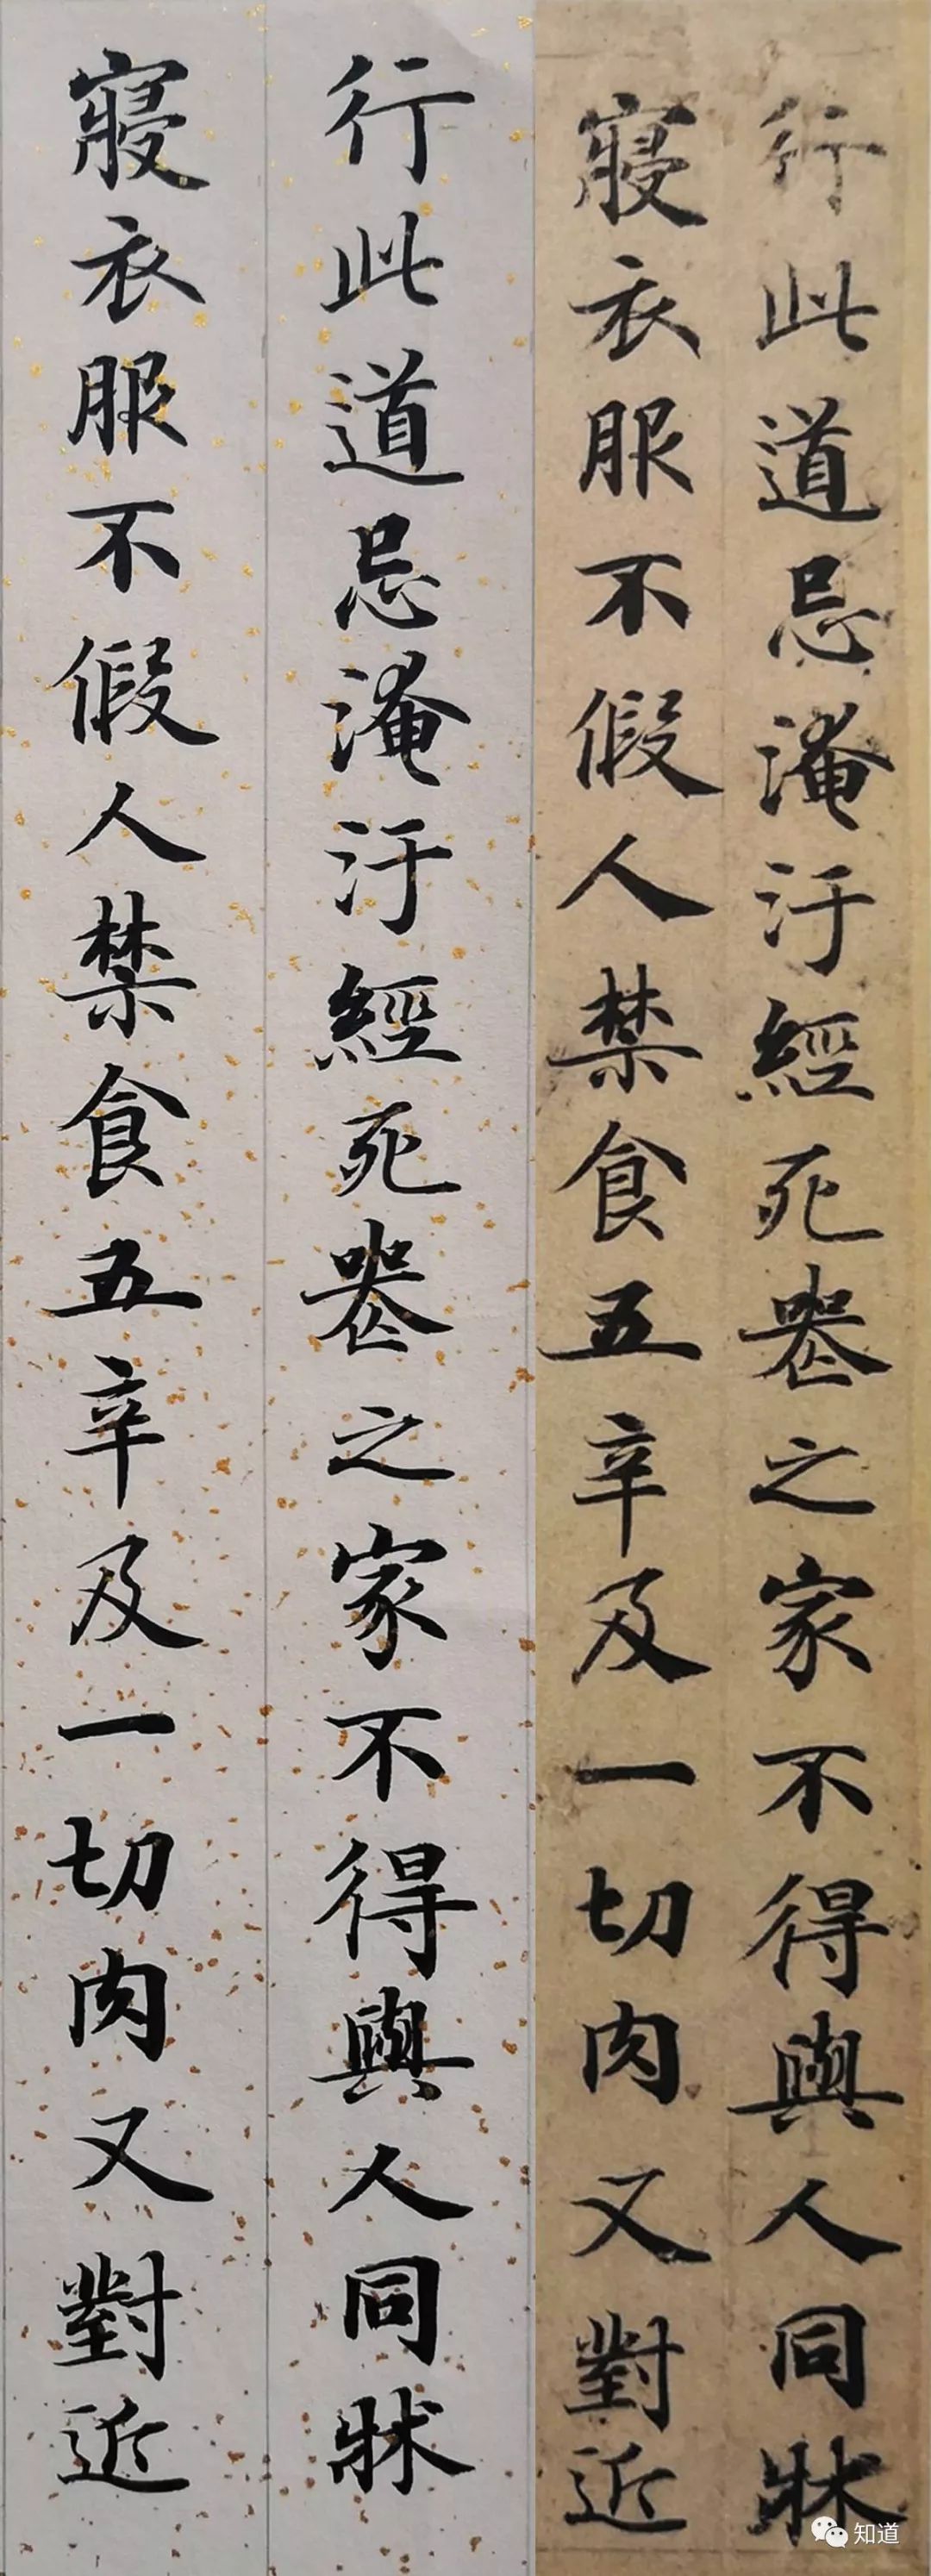 行此道忌淹汙經死喪之家不得與人同牀
寢衣服不假人禁食五辛及一切肉又對近
行此道忌淹汙經死喪之家不得與人同牀
寢衣服不假人禁食五辛及一切肉又對近
知道